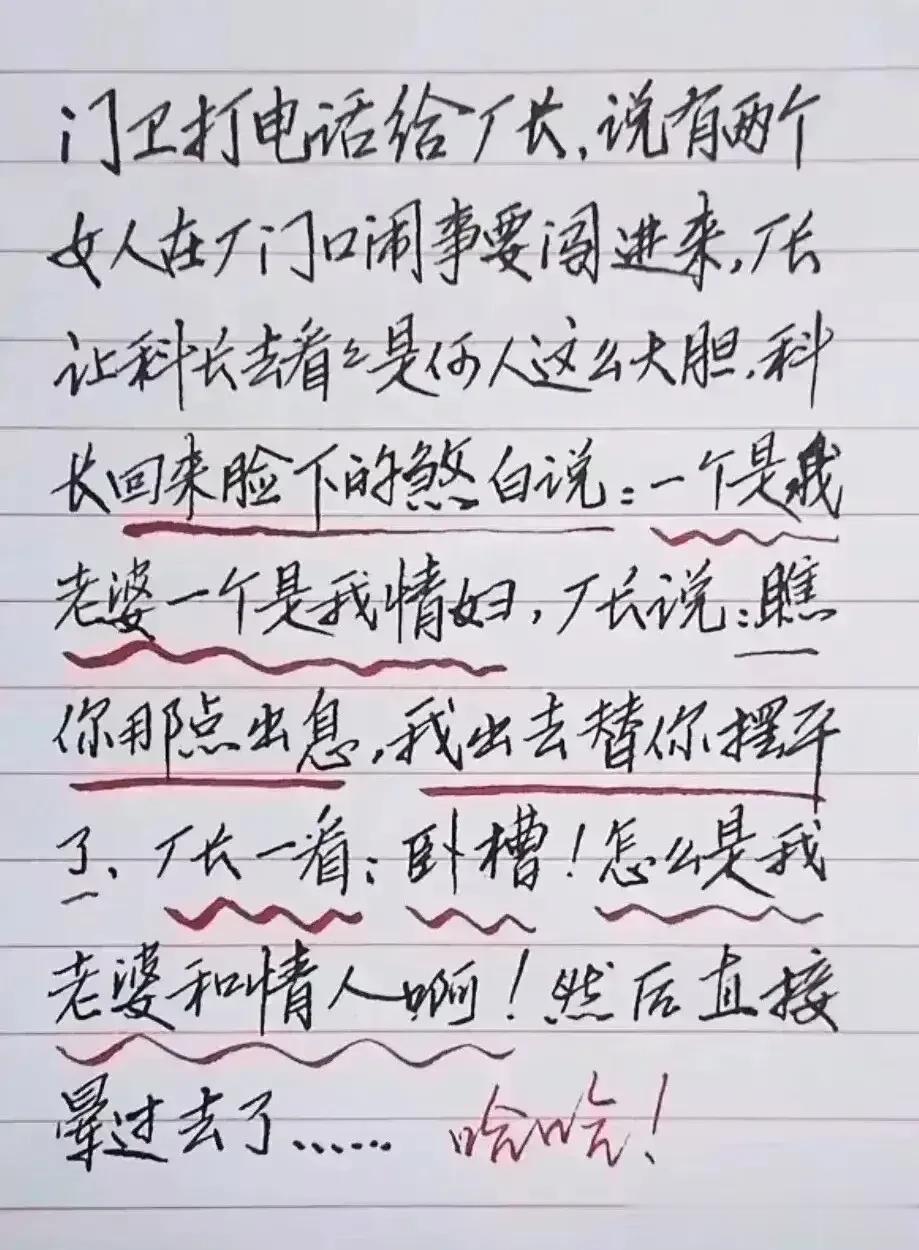 门卫打电话给厂长,说有两个
女人在厂门口闹事要闯进来,厂长
让科长去看々是何人这么大胆.科
长回来脸下的煞白说:一个是我
老婆一个是我情妇,厂长说:瞧
你那点出息,我出去替你摆平
了、厂长一看:卧槽!怎么是我
老婆和情人啊!然后直接
晕过去了…… 哈哈!